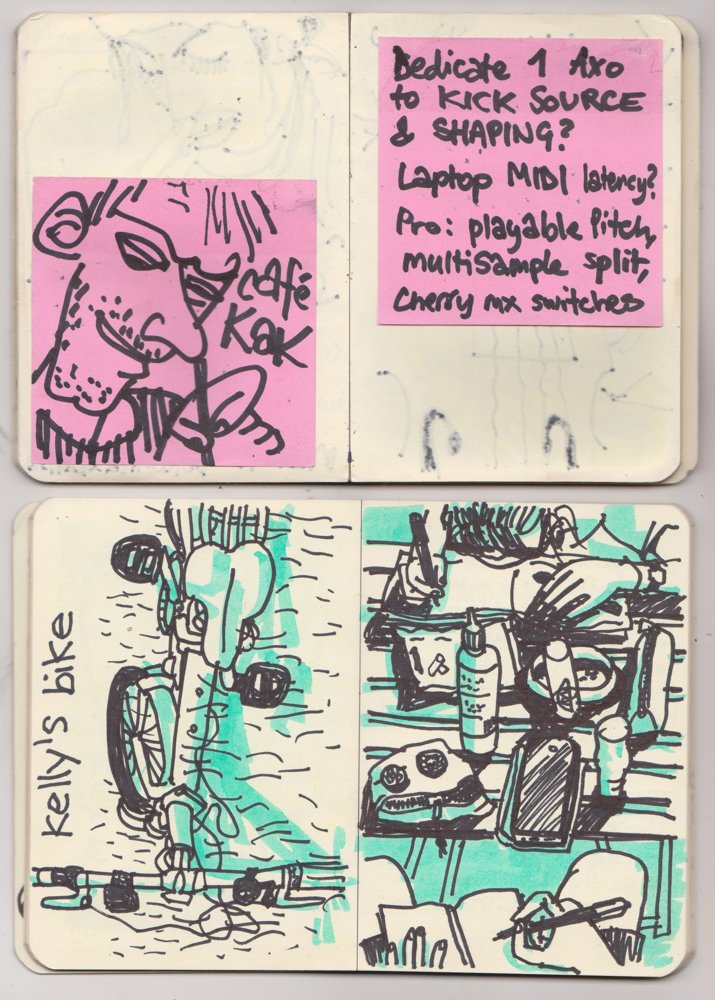 café
KaK
Dedicate 1 Axo
to KICK SOURCE
& SHAPING?
Laptop MIDI latency?
Pro: playable Pitch,
multisample split,
cherry mx switches
kelly's bike